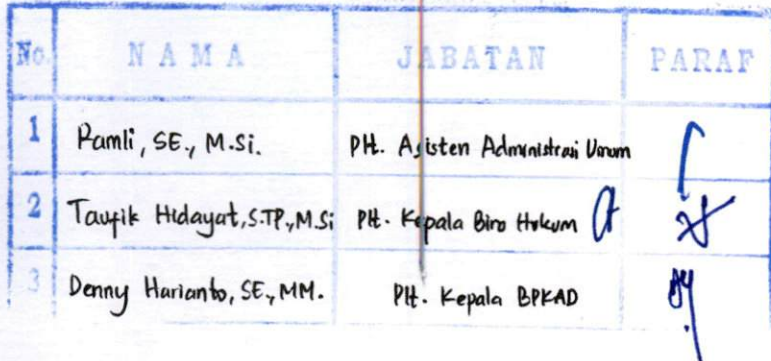 No. NAMA JABATAN PARAF
1 Ramli, SE., M.Si. Plt. Asisten Administrasi Umum
2 Taufik Hidayat, S.TP., M.Si Plt. Kepala Biro Hukum
3 Denny Harianto, SE., MM. Plt. Kepala BPKAD